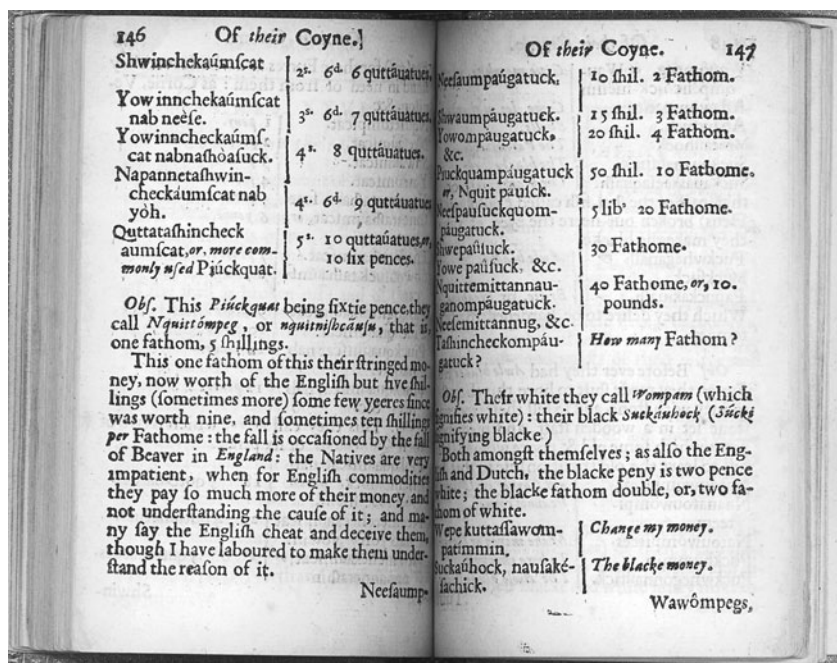 146 Of their Coyne.]
Shwinchekaúmſcat 2s. 6d. 6 quttáuatues.
Yowinnchekaúmſcat
nab neèſe. 3s. 6d. 7 quttáuatues.
Yowinncheckaúmſ-
cat nabnaſhòaſuck. 4s. 8 quttáuatues.
Napannetaſhwin-
checkáumſcat nab
yòh. 4s. 6d. 9 quttáuatues
Quttataſhincheck
aumſcat, or, more com-
monly uſed Piúckquat. 5s. 10 quttáuatues, or,
10 ſix pences.
Obſ. This Piúckquat being ſixtie pence, they
call Nquittómpeg, or nquitniſhcáuſu, that is,
one fathom, 5 ſhillings.
This one fathom of this their ſtringed mo-
ney, now worth of the Engliſh but five ſhil-
lings (ſometimes more) ſome few yeeres ſince
was worth nine, and ſometimes ten ſhillings
per Fathome : the fall is occaſioned by the fall
of Beaver in England : the Natives are very
impatient, when for Engliſh commodities
they pay ſo much more of their money, and
not underſtanding the cauſe of it ; and ma-
ny ſay the Engliſh cheat and deceive them,
though I have laboured to make them under-
ſtand the reaſon of it.
Neeſaump-
Of their Coyne. 147
Neeſaumpaúgatuck. 10 ſhil. 2 Fathom.
Shwaumpáugatuck. 15 ſhil. 3 Fathom.
Yowompáugatuck, 20 ſhil. 4 Fathom.
&c.
Piuckquampáugatuck 50 ſhil. 10 Fathome.
or, Nquit pâuſck.
Neeſpauſuckquom- 5 libs 20 Fathome.
páugatuck.
Shwepaûſuck. 30 Fathome.
Yowe paûſuck, &c.
Nquittemittannau- 40 Fathome, or, 10.
ganompáugatuck. pounds.
Neeſemittannug, &c.
Taſhincheckompáu- How many Fathom ?
gatuck ?
Obſ. Their white they call Wompam (which
ſignifies white) : their black Suckáuhock (Súcki
ſignifying blacke )
Both amongſt themſelves ; as alſo the Eng-
liſh and Dutch, the blacke peny is two pence
white ; the blacke fathom double, or, two fa-
thom of white.
Wepe kuttaſſawom- Change my money.
patimmin.
Suckaúhock, nauſaké- The blacke money.
ſachick.
Wawômpegs,